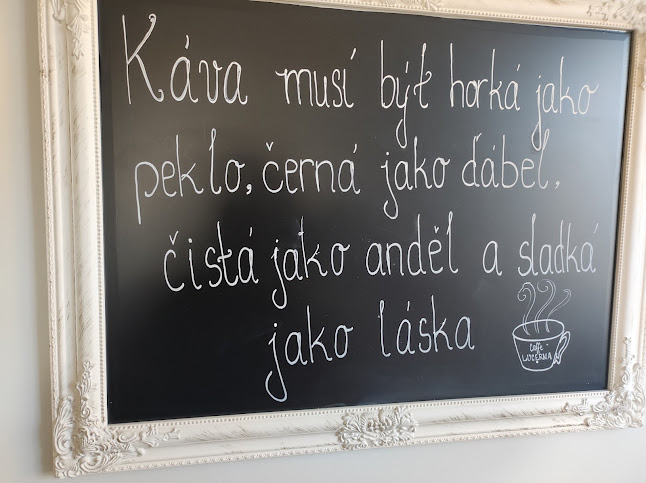 Káva musí být horká jako
peklo, černá jako ďábel,
čistá jako anděl a sladká
jako láska
Caffe
LUCERNA